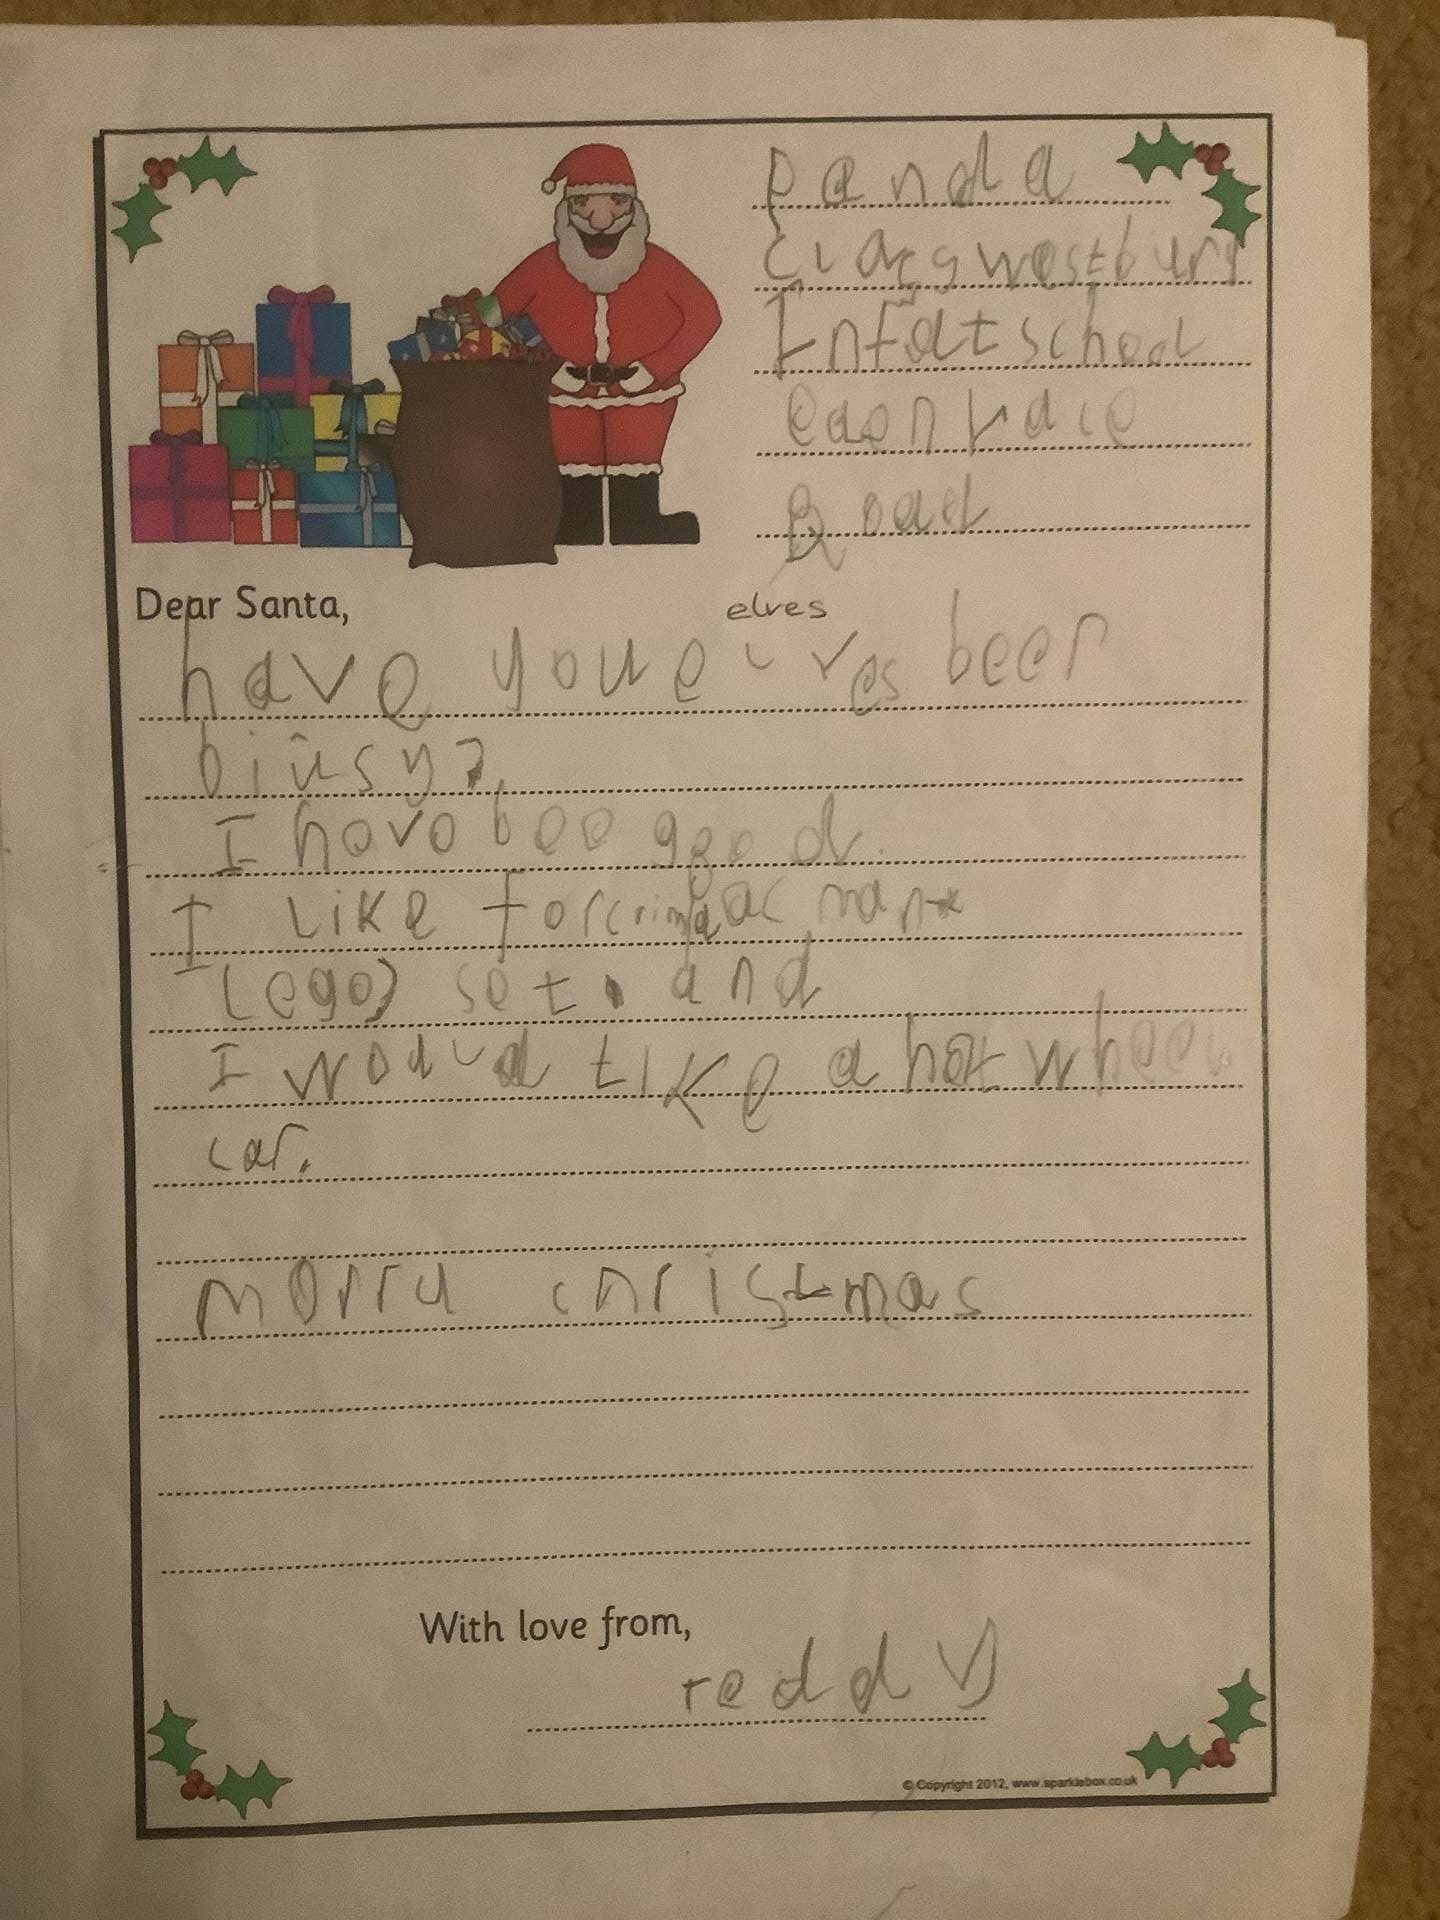 Panda
clacs westbury
Infatschool
eaenrdce
Road
Dear Santa,
elves
have you elves been
biusy?
I have bee good.
I like forcrimac man
(lego) set. and
I would like a hot wheel
car.
morru christmas
With love from,
reddy
© Copyright 2012, www.sparklebox.co.uk